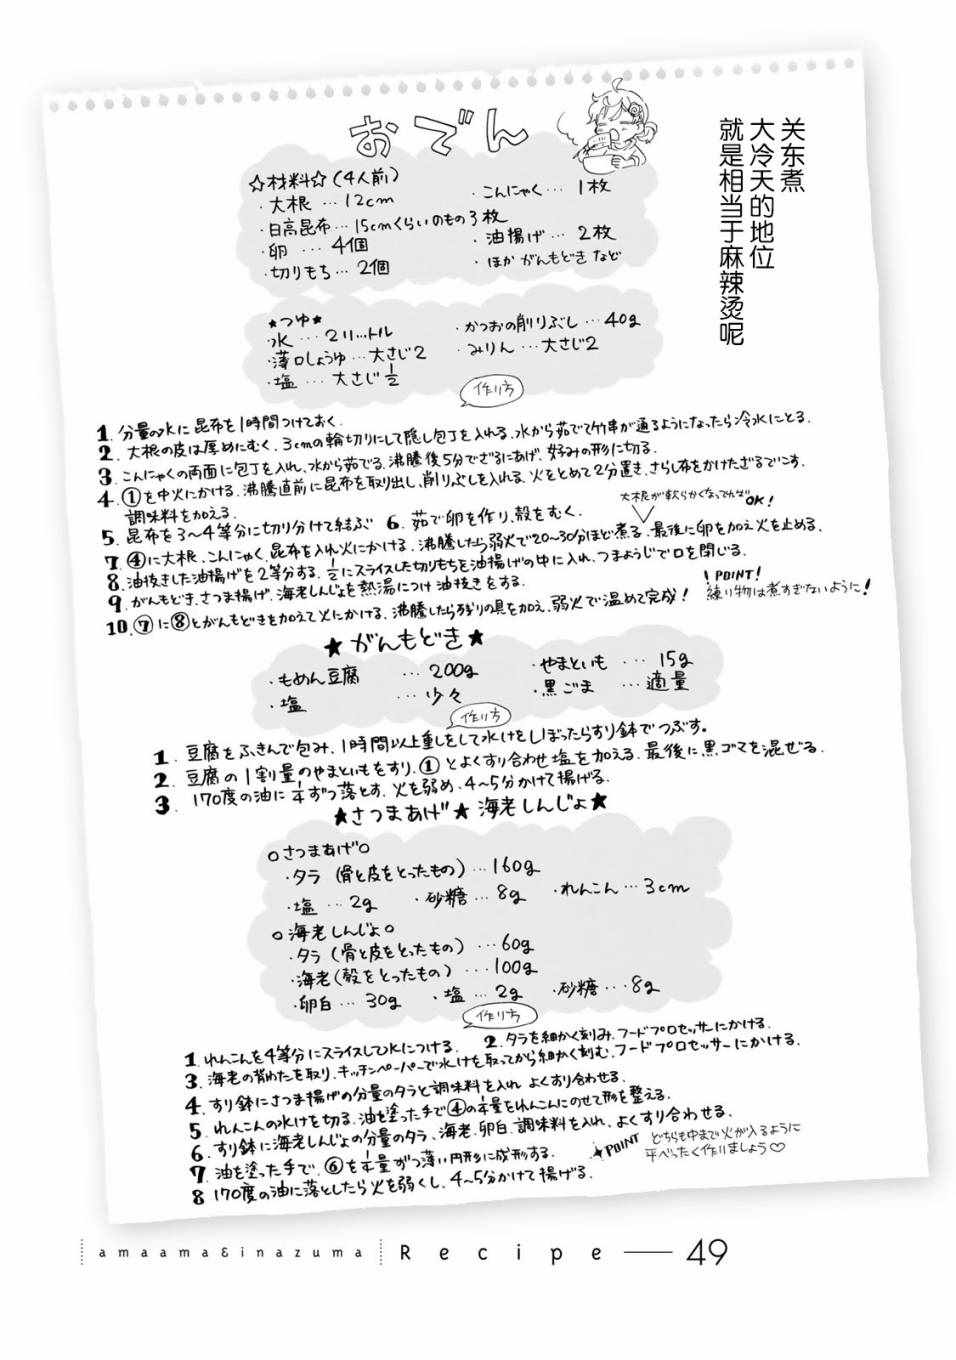 关东煮
大冷天的地位
就是相当于麻辣烫呢
おでん
☆材料☆(4人前)
・大根…12cm
・日高昆布…15cmくらいのもの3枚
・卵…4個
・切りもち…2個
・こんにゃく…1枚
・油揚げ…2枚
・ほか がんもどきなど
★つゆ★
水…2リットル
・薄口しょうゆ…大さじ2
・塩…大さじ1/2
・かつおの削りぶし…40g
・みりん…大さじ2
作り方
1.分量の水に昆布を1時間つけておく.
2.大根の皮は厚めにむく.3cmの輪切りにして隠し包丁を入れる.水から茹でて竹串が通るようになったら冷水にとる.
3.こんにゃくの両面に包丁を入れ、水から茹でる.沸騰後5分でざるにあげ、好みの形に切る.
4.①を中火にかける.沸騰直前に昆布を取り出し、削りぶしを入れる.火をとめて2分置き、さらし布をかけたざるでこす.
調味料を加える.
5.昆布を3〜4等分に切り分けて結ぶ
6.茹で卵を作り、殻をむく.
大根が軟らかくなってればOK!
7.④に大根、こんにゃく 昆布を入れ火にかける.沸騰したら弱火で20〜30分ほど煮る.最後に卵を加え火を止める.
8.油抜きした油揚げを2等分する.1/2にスライスした切りもちを油揚げの中に入れ、つまようじで口を閉じる.
9.がんもどき、さつま揚げ、海老しんじょを熱湯につけ油抜きをする.
!POINT!
練り物は煮すぎないように!
10.⑦に⑧とがんもどきを加えて火にかける.沸騰したら残りの具を加え、弱火で温めて完成!
★がんもどき★
・もめん豆腐…200g
・塩…少々
・やまといも…15g
・黒ごま…適量
作り方
1.豆腐をふきんで包み、1時間以上重しをして水けをしぼったらすり鉢でつぶす。
2.豆腐の1割量のやまといもをすり、①とよくすり合わせ塩を加える.最後に黒ゴマを混ぜる.
3.170度の油に1/4ずつ落とす.火を弱め、4〜5分かけて揚げる.
★さつまあげ★海老しんじょ★
○さつまあげ○
・タラ(骨と皮をとったもの)…160g
・塩…2g
・砂糖…8g
・れんこん…3cm
○海老しんじょ○
・タラ(骨と皮をとったもの)…60g
・海老(殻をとったもの)…100g
・卵白…30g
・塩…2g
・砂糖…8g
作り方
1.れんこんを4等分にスライスして水につける.
2.タラを細かく刻み、フードプロセッサーにかける.
3.海老の背わたを取り、キッチンペーパーで水けを取ってから細かく刻む.フードプロセッサーにかける.
4.すり鉢にさつま揚げの分量のタラと調味料を入れ よくすり合わせる.
5.れんこんの水けを切る.油を塗った手で④の1/4量をれんこんにのせて形を整える.
6.すり鉢に海老しんじょの分量のタラ、海老、卵白、調味料を入れ、よくすり合わせる.
7.油を塗った手で、⑥を1/4量ずつ薄い円形に成形する.
★POINT
どちらも中まで火が入るように
平べったく作りましょう♡
8 170度の油に落としたら火を弱くし、4〜5分かけて揚げる.
amaama&inazuma
Recipe — 49